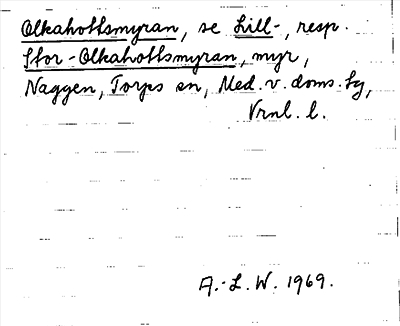 Olkahottsmyran, se Lill-, resp.
Stor-Olkahottsmyran, myr,
Naggen, Torps sn, Med. v. doms. tg,
Vrnl. l.
A.-L. W. 1969.